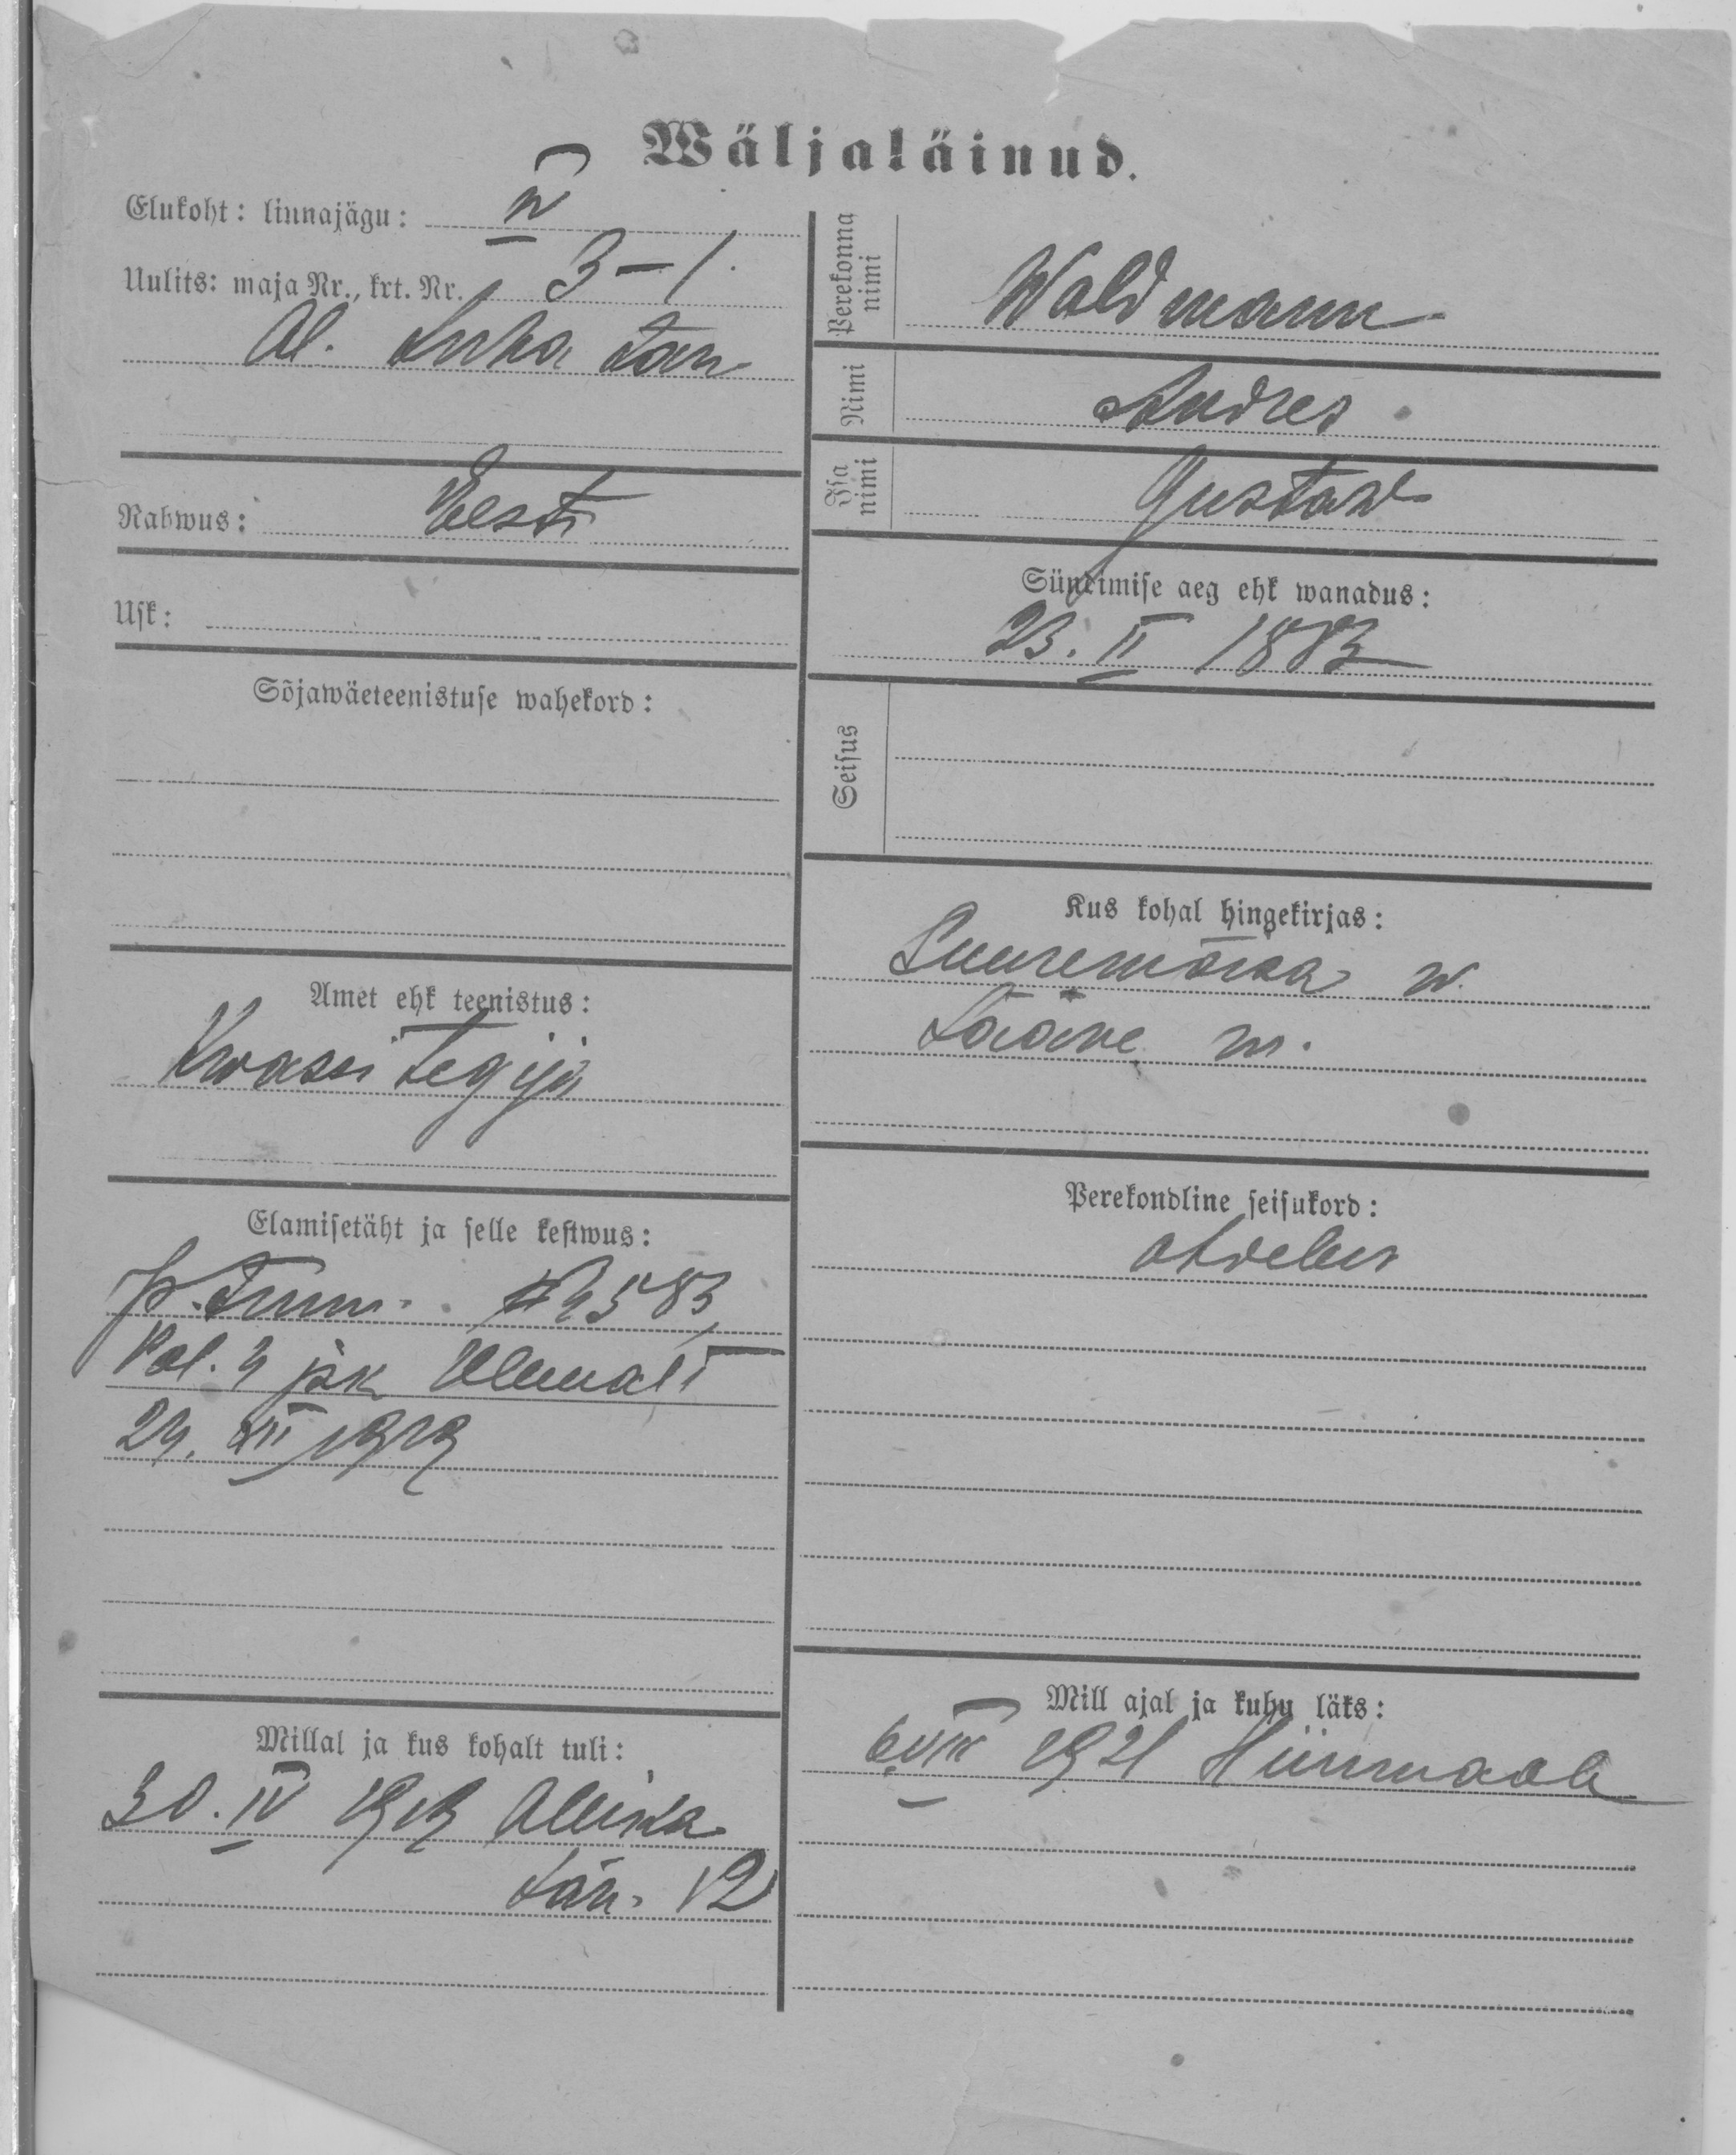 Wäljaläinud.
Elukoht: linnajägu: IV
Uulits: maja Nr., krt. Nr. 3-1.
Al. tän
Rahwus: Eesti
Usk:
Sõjawäeteenistuse wahekord:
Amet ehk teenistus:
Kwassi tegija
Elamisetäht ja selle kestwus:
Pol. 4 jsk
Millal ja kus kohalt tuli:
30. IV 1919
tän. 12
Perekonna
nimi
Waldmann
Nimi
Andres
Isa
nimi
Gustaw
Sündimise aeg ehk wanadus:
23. II 1883
Seisus
Kus kohal hingekirjas:
Suuremõisa w.
Lääne m.
Perekondline seisukord:
Mill ajal ja kuhu läks:
6 VIII 1921 Hiiumaale